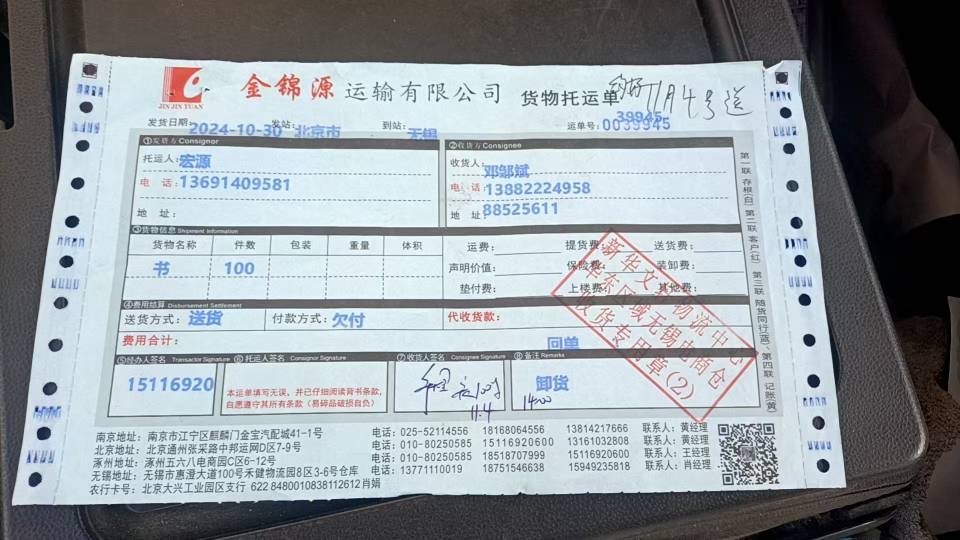 JIN JIN YUAN
金锦源运输有限公司 货物托运单 11月4号送
39945
发货日期: 2024-10-30 发站: 北京市 到站: 无锡 运单号: 0039945
①发货方 Consignor ②收货方 Consignee
托运人: 宏源 收货人: 邓邹斌
电话: 13691409581 电话: 13882224958
地址: 地址: 88525611
③货物信息 Shipment Information
货物名称 件数 包装 重量 体积 运费: 提货费: 送货费:
书 100 声明价值: 保险费: 装卸费:
垫付费: 上楼费: 其他费:
④费用结算 Disbursement Settlement
送货方式: 送货 付款方式: 欠付 代收货款:
费用合计: 回单
⑤经办人签名 Transactor Signature ⑥托运人签名 Consignor Signature ⑦收货人签名 Consignee Signature ⑧备注 Remarks
15116920 卸货
本运单填写无误、并已仔细阅读背书条款,
自愿遵守其所有条款(易碎品破损自负)
11.4 14:00
新华文轩物流中心
华东区域无锡电商仓
收货专用章(2)
第一联 存根(白) 第二联 客户(红) 第三联 随货同行(蓝)、第四联 记账(黄)
南京地址: 南京市江宁区麒麟门金宝汽配城41-1号 电话: 025-52114556 18168064556 13814217666 联系人: 黄经理
北京地址: 北京通州张采路中邦运网D区7-9号 电话: 010-80250585 15116920600 13161032808 联系人: 黄经理
涿州地址: 涿州五六八电商园C区6-12号 电话: 010-80250585 18518707999 15116920600 联系人: 王经理
无锡地址: 无锡市惠澄大道100号禾健物流园8区3-6号仓库 电话: 13771110019 18751546638 15949235818 联系人: 肖经理
农行卡号: 北京大兴工业园区支行 622 8480010838112612 肖娟